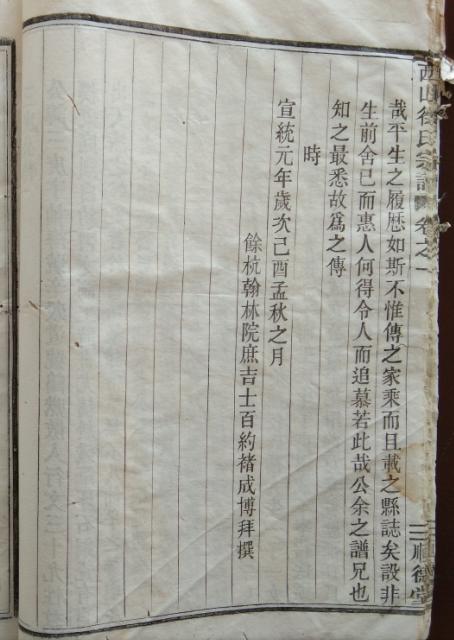 西山徐氏宗譜 卷之一
三 順德堂
哉平生之履歷如斯不惟傳之家乘而且載之縣誌矣設非
生前舍己而惠人何得令人而追慕若此哉公余之譜兄也
知之最悉故爲之傳
時
宣統元年歲次己酉孟秋之月
餘杭翰林院庶吉士百約褚成博拜撰